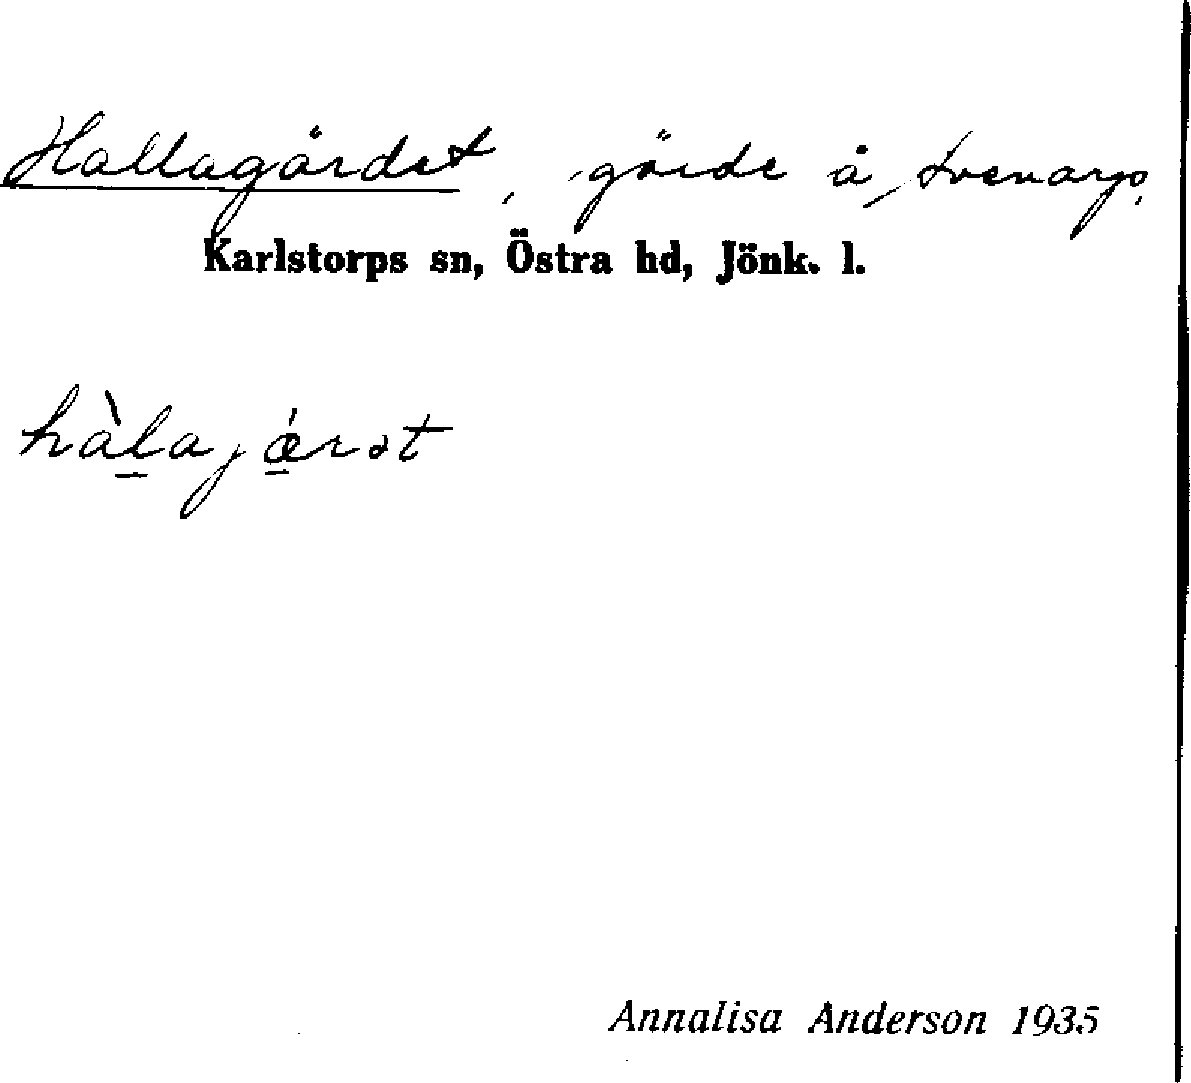 Hallagärdet, gärde å Svenarp,
Karlstorps sn, Östra hd, Jönk. l.
hàl̲ajǽ̲rət
Annalisa Anderson 1935